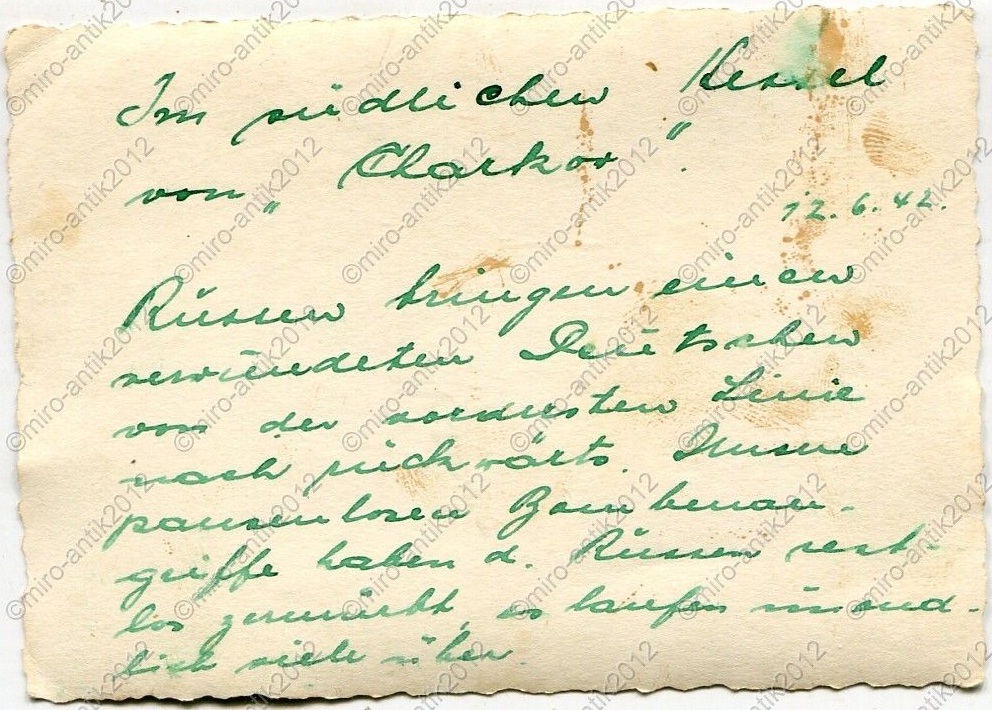 Im südlichen Kessel
von „Charkow“.
12.6.42.
Russen bringen einen
verwundeten Deutschen
von der vordersten Linie
nach rückwärts. Unsere
pausenlosen Bombenan-
griffe haben d. Russen rest-
los zermürbt, es laufen unend-
lich viele über.
©miro-antik2012